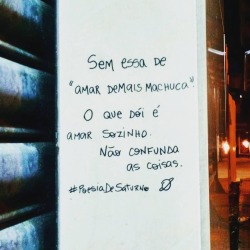 Sem essa de
"amar demais machuca".
O que dói é
amar sozinho.
Não confunda
as coisas.
#PoesiaDeSaturno